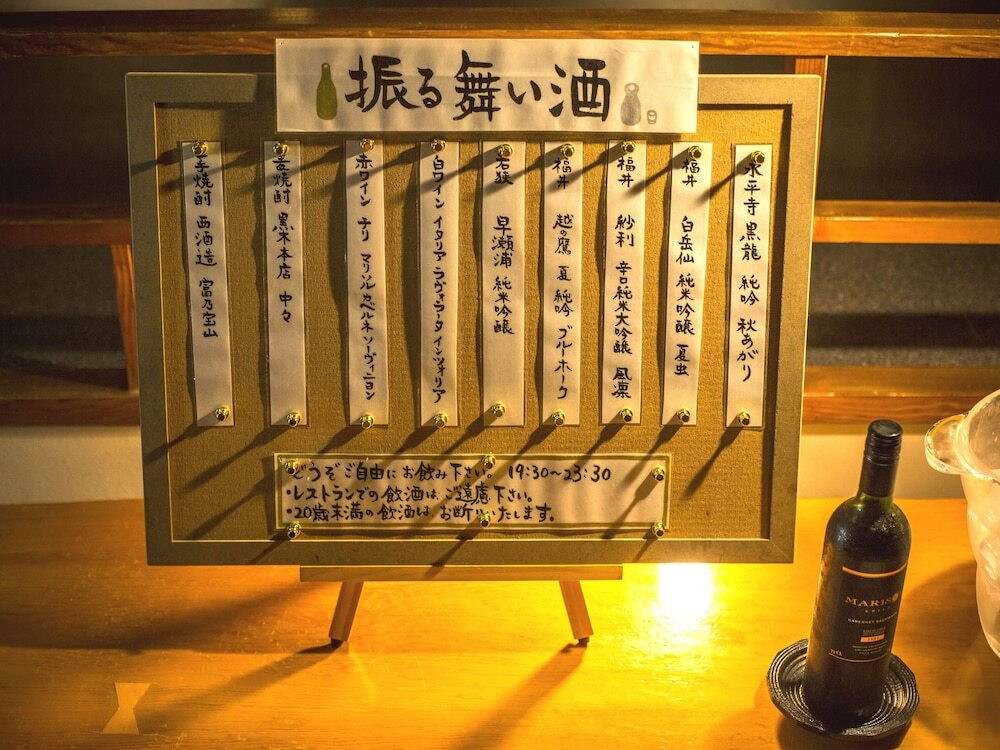 振る舞い酒
永平寺 黒龍 純吟 秋あがり
福井 白岳仙 純米吟醸 夏虫
福井 紗利 辛口純米大吟醸 風凛
福井 越の鷹 夏 純吟 ブルーホーク
若狭 早瀬浦 純米吟醸
白ワイン イタリア ラヴォラータ インツォリア
赤ワイン チリ マリソル カベルネソーヴィニヨン
麦焼酎 黒木本店 中々
芋焼酎 西酒造 富乃宝山
どうぞご自由にお飲み下さい。 19:30~23:30
・レストランでの飲酒は、ご遠慮下さい。
・20歳未満の飲酒は お断りいたします。
MARISO
CHILE
CABERNET SAUVIGNON